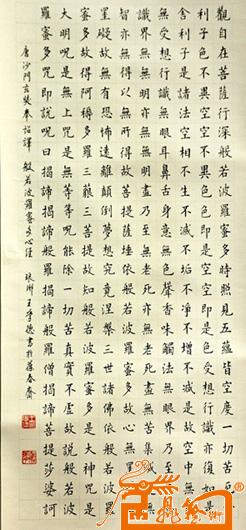 觀自在菩薩行深般若波羅蜜多時照見五蘊皆空度一切苦厄
利子色不異空空不異色色即是空空即是色受想行識亦復如是
舍利子是諸法空相不生不滅不垢不淨不增不減是故空中無
無受想行識無眼耳鼻舌身意無色聲香味觸法無眼界乃至
識界無無明亦無無明盡乃至無老死亦無老死盡無苦集滅
智亦無得以無所得故菩提薩埵依般若波羅蜜多故心無罣
罣礙故無有恐怖遠離顛倒夢想究竟涅槃三世諸佛依般若波羅
蜜多故得阿耨多羅三藐三菩提故知般若波羅蜜多是大神咒是
大明咒是無上咒是無等等咒能除一切苦真實不虛故說般若波
羅蜜多咒即說咒曰揭諦揭諦般羅揭諦般羅僧揭諦菩提莎婆訶
唐沙門玄奘奉詔譯 般若波羅蜜多心經 王學德書於葆春齋